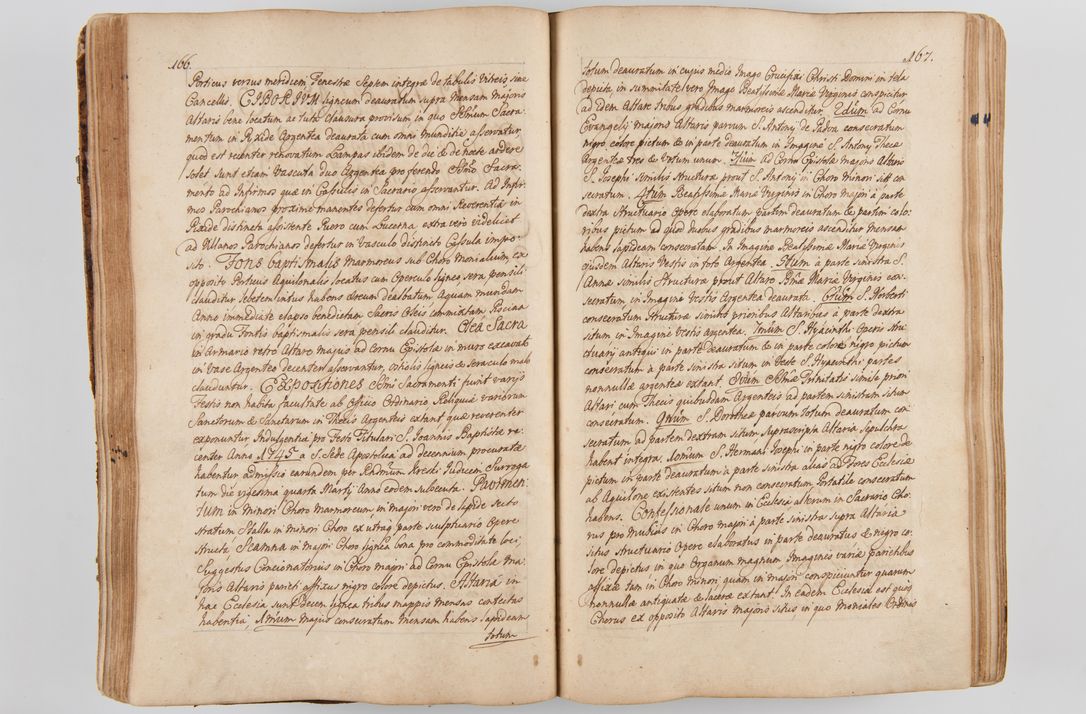 166.
Porticus versus meridiem Fenestræ Septem integræ de tabulis Vitreis sine
Cancellis. CIBORIUM ligneum deauratum supra Mensam majoris
Altaris bene locatum ac tuta clausura provisum in quo SSmum Sacra-
mentum in Pixide Argentea deaurata cum omni munditie asservatur,
quod est recenter renovatum Lampas ibidem de die & de nocte ardere
solet Sunt etiam Vascula duo Argentea pro ferendo SSmo Sacra-
mento ad Infirmos quæ in Capsulis in Sacrario asservantur. Ad Infir-
mos Parochianos proxime manentes defertur cum omni Reverentia in
Pixide distincta assistente Puero cum Lucerna, extra vero videlicet
ad Villanos Parochianos defertur in Vasculo distincto Capsula impo-
sito. Fons baptismalis marmoreus sub Choro Monialium, ex
opposito Porticus Aquilonalis locatus cum Operculo ligneo, sera pensili
clauditur, Lebetem intus habens æreum dealbatum Aquam mundam
Anno immediate elapso benedictam Sacris Oleis commixtam Piscina
in gradu Fontis baptismalis sera pensili clauditur. Olea Sacra
in Armario retro Altare majus ad Cornu Epistolæ in muro excavato
in Vase Argenteo decenter asservantur, ostiolis ligneis & seraculo
clauduntur. Expositiones SSmi Sacramenti fiunt varijs
Festis non habita facultate ab Officio Ordinario Reliquiæ variorum
Sanctorum & Sanctarum in Thecis Argenteis extant quæ reverenter
exponuntur, Indulgentia pro Festo Titulari S. Joannis Baptistæ re-
center Anno 1745 a S. Sede Apostolica ad decennium procuratæ
habentur admissæ earundem per Rdmum Judicem Surroga
tum die vigesima quarta Martij Anno eodem subsecuta. Pavimen
tum in minori Choro Marmoreum, in majori vero de lapide secto
stratum Stalla in minori Choro ex utraq parte sculptuario Opere
structa, Scamna in Majori Choro lignea bona pro commoditate loci,
Suggestus Concionatorius in Choro majori ad Cornu Epistolæ Ma-
joris Altaris parieti affixus nigro colore depictus. Altaria in
hac Ecclesia sunt Decem lignea tribus mappis mensas contectas
habentia, Primum majus consecratum Mensam habens lapideam
totum
167.
totum deauratum in cujus medio Imago Crucifixi Christi Domini in tela
depicta, in summitate vero Imago Beatissimæ Mariæ Virginis conspicitur
ad idem Altare tribus gradibus marmoreis ascenditur. 2dum ad Cornu
Evangelij majoris Altaris parvum S. Antonij de Padua consecratum
nigro colore pictum & in parte deauratum in Imagine S. Antonij Thecæ
Argenteæ tres & Votum unum. 3tium ad Cornu Epistolæ majoris Altaris
S. Josephi similis structura prout S. Antonij in Choro minori sitt con
secratum. 4tum Beatissimæ Mariæ Virginis in Choro Majori à parte
dextra structuario Opere elaboratum Partem deauratum & partem colo-
ribus pictum ad quod duobus gradibus marmoreis ascenditur mensam
habens lapideam consecratam. In Imagine Beatissimæ Mariæ Virginis
ejusdem Altaris Vestis in toto Argentea. 5tum à parte sinistra S.
Annæ similis structura prout Altare Bmæ Mariæ Virginis con-
secratum in Imagine Vestis Argentea deaurata. 6tum S. Norberti
consecratum structura simili prioribus Altaribus à parte dextra
situm in Imagine vestis argentea. 7mum S. Hyacinthi Operis stru
ctuarij antiqui in parte deauratum & in parte colore nigro pictum
consecratum à parte sinistra situm in Veste S. Hyacinthi partes
nonnullæ argenteæ extant. 8vum SSmæ Trinitatis simile priori
Altari cum Thecis quibusdam Argenteis ad partem sinistram situm
consecratum. 9num S. Dorotheæ parvum totum deauratum con
secratum ad partem dextram situm suprascripta Altaria sepulchra
habent integra, 10mum S. Hermani Josephi in parte nigro colore de
pictum in parte deauratum à parte sinistra alias ad Fores Ecclesiæ
ab Aquilone existentes situm non consecratum, Portatile consecratum
habens. Confessionale unum in Ecclesia alterum in Sacrario Cho-
rus pro Musicis in Choro majori à parte sinistra supra Altaria
situs structuario opere elaboratus in parte deauratus & nigro co-
lore depictus in quo Organum magnum, Imagines variæ parietibus
affixæ tam in Choro minori, quam in majori conspiciuntur quarum
nonnullæ antiquatæ & laceræ extant. In eadem Ecclesia est quoq
Chorus ex opposito Altaris majoris situs, in quo Moniales Ordinis